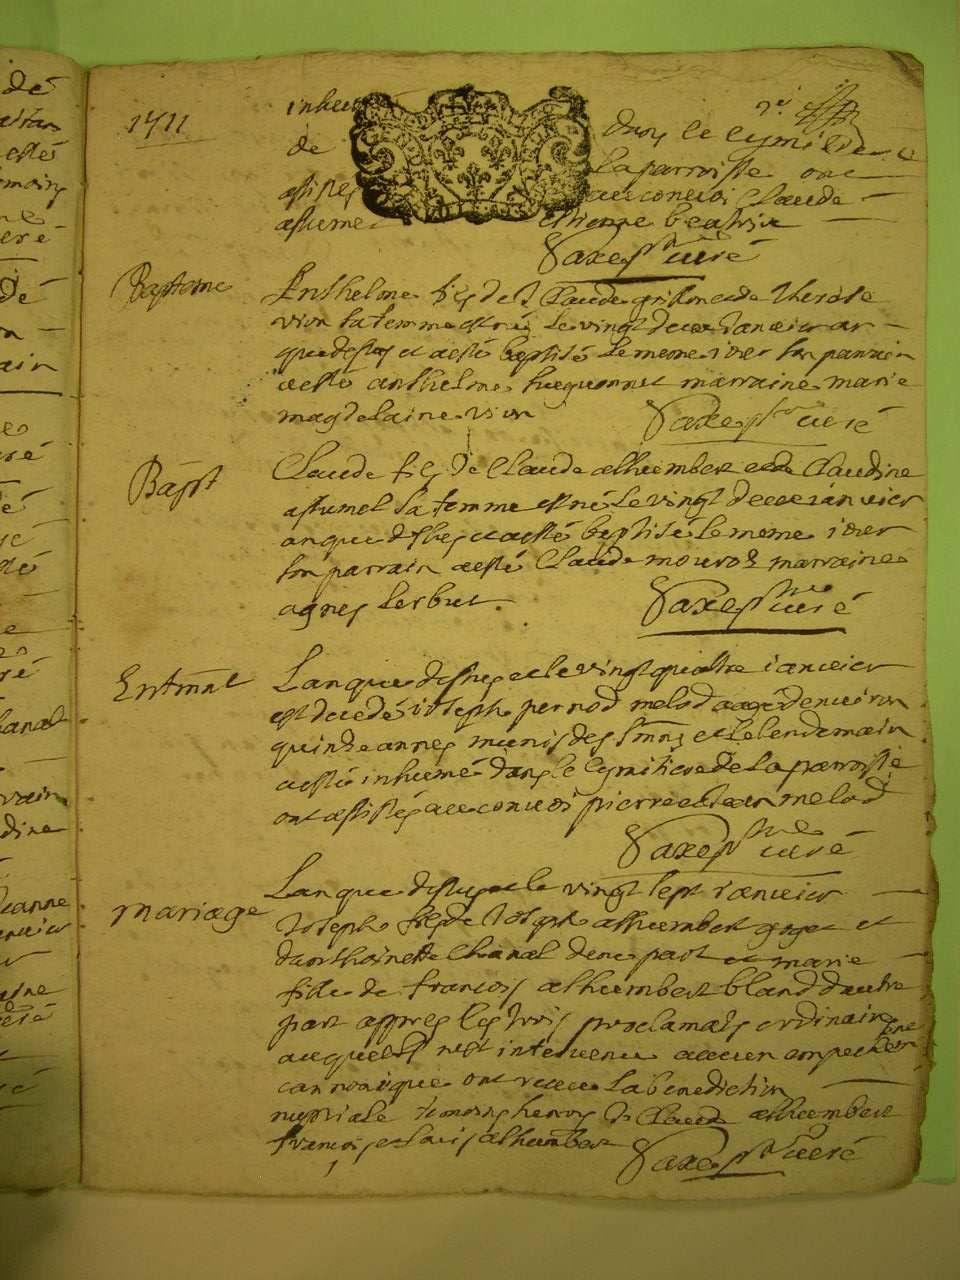 1711
inhu
dans le cymitiere
de
la parroisse ont
assistes
au convoi Claude
assume
etienne beatrix
Saxe ptre curé
Bapteme
Anthelme fils de Claude grillon et de therese
vion sa femme est né le vingt deux janvier an
que dessus et a esté baptisé le meme iour son parrain
a esté anthelme huguonnet marraine marie
magdelaine vion
Saxe ptre curé
Bapt
Claude fils de Claude alhumbert et de Claudine
assumel sa femme est né le vingt deux ianvier
an que dessus et a esté baptisé le meme iour
son parrain a esté Claude mouroz marraine
agnes
Saxe ptre curé
Entmnt
Lan que dessus et le vingt quattre ianvier
est decedé ioseph pernod melod aagé denviron
quinze annes munis des Smns et le lendemain
a esté inhumé dans le cymitiere de la parroisse
ont assistés au convoi pierre et iean melod
Saxe ptre curé
mariage
Lan que dessus et le vingt sept ianvier
ioseph fils de ioseph alhumbert goget et
danthoinette Chanal dune part et marie
fille de francois alhumbert bland dautre
part appres les trois proclamats ordinaires
auquels nest intervenu aucun empechement
cannonique ont receu la benediction
nuptiale temoins henry Claude alhumbert
francois et louis alhumbert
Saxe ptre curé